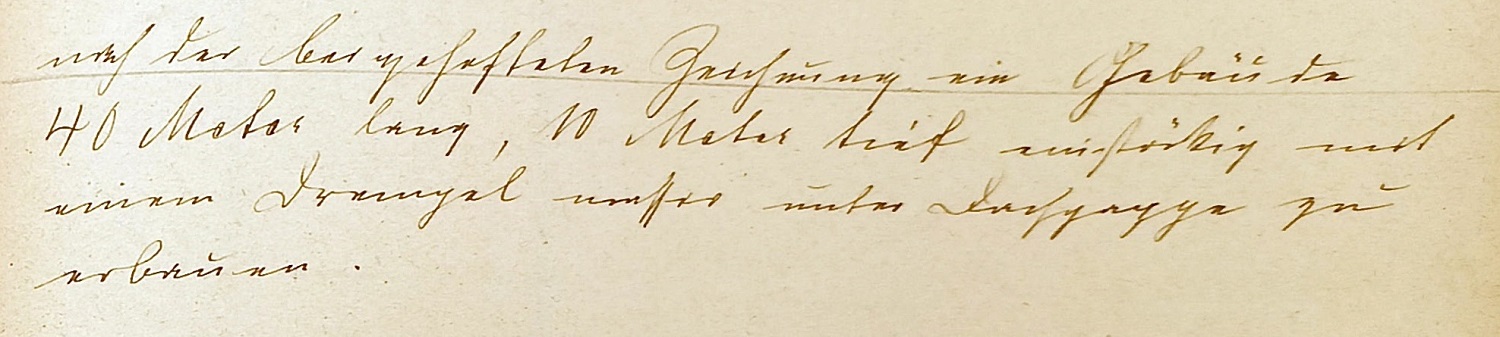 nach der beigehefteten Zeichnung ein Gebäude
40 Meter lang, 10 Meter tief einstöckig mit
einem Drempel massiv unter Dachpappe zu
erbauen.